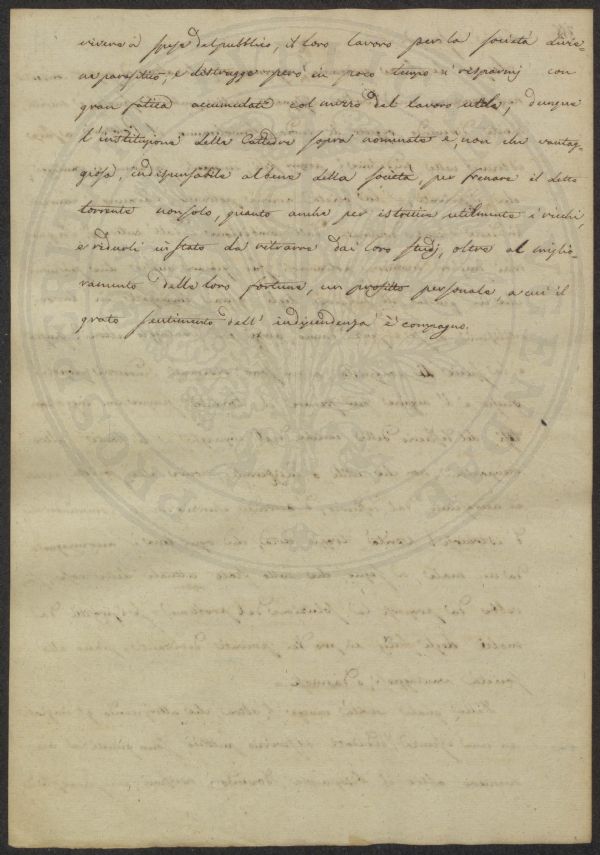 vivere à spese del pubblico, il loro lavoro per la società divie-
ne parasitico, e distrugge però in poco tempo i risparmj con
gran fatica accumulati col mezzo del lavoro utile; dunque
l'instituzione delle Cattedre sopra nominate è, non che vantag-
giosa, indispensabile al bene della società, per frenare il detto
torrente non solo, quanto anche per istruire utilmente i ricchi,
e ridurli in stato da ritrarre dai loro studj, oltre al miglio-
ramento delle loro fortune, un profitto personale, a cui il
grato sentimento dell'indipendenza è compagno.